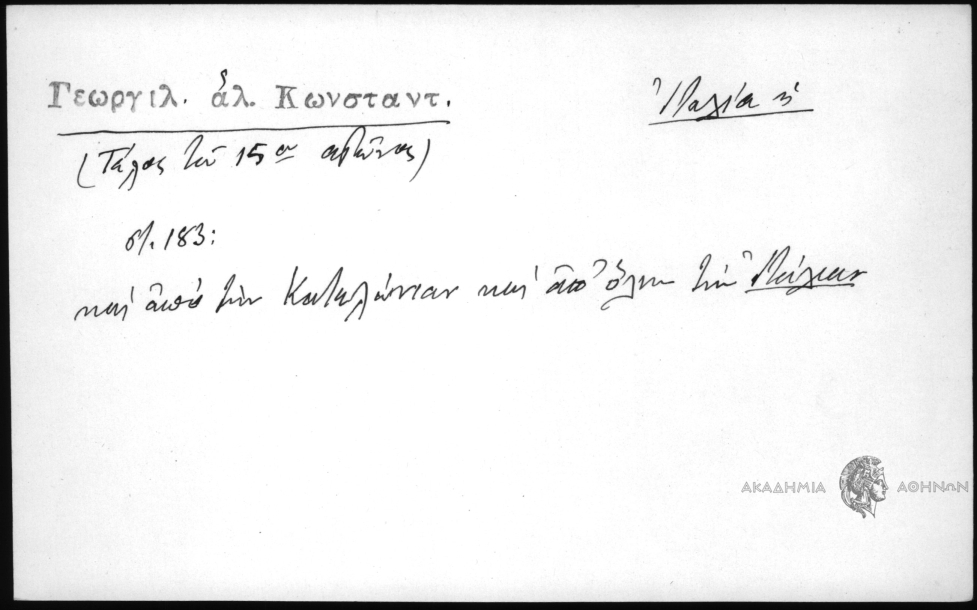 Γεωργιλ. ἁλ. Κωνσταντ.
Ἰταλία ἡ
(Τέλος τοῦ 15ου αἰῶνος)
στ. 183:
καὶ ἀπὸ τὴν Καταλώνιαν καὶ ἀπ' ὅλην τὴν Ἰτάλιαν
ΑΚΑΔΗΜΙΑ ΑΘΗΝΩΝ